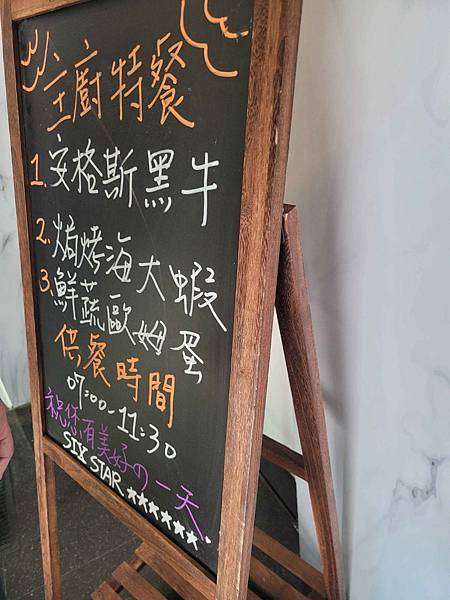 主廚特餐
1. 安格斯黑牛
2. 焗烤海大蝦
3. 鮮蔬歐姆蛋
供餐時間
07:00-11:30
祝您有美好の一天.
SIX STAR ★★★★★★